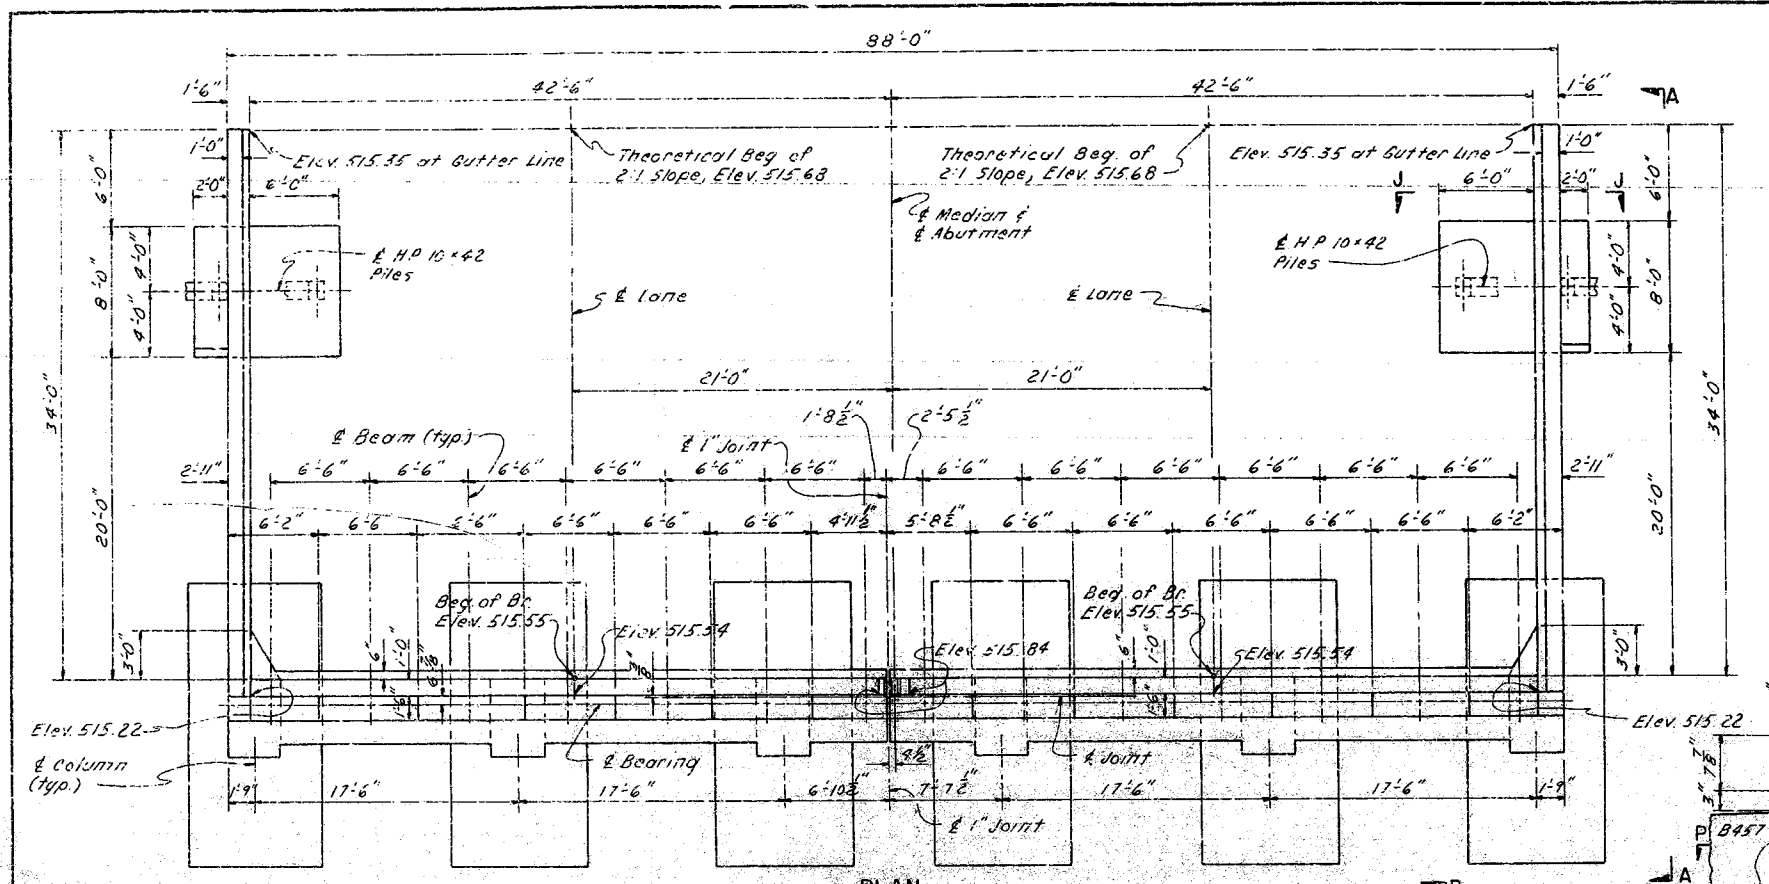 88'-0"
1'-6"
42'-6"
42'-6"
1'-6"
A
1'-0"
Elev. 515.35 at Gutter Line
Theoretical Beg of
2:1 Slope, Elev. 515.68
Theoretical Beg. of
2:1 Slope, Elev. 515.68
Elev. 515.35 at Gutter Line
1'-0"
6'-0"
2'-0"
6'-0"
J
6'-0"
2'-0"
J
6'-0"
℄ Median &
℄ Abutment
℄ H.P. 10×42
Piles
℄ H.P. 10×42
Piles
8'-0"
4'-0"
4'-0"
℄ Lane
℄ Lane
4'-0"
4'-0"
8'-0"
34'-0"
21'-0"
21'-0"
34'-0"
1'-8½"
2'-5½"
℄ Beam (typ.)
℄ 1" Joint
2'-11"
6'-6"
6'-6"
6'-6"
6'-6"
6'-6"
6'-6"
6'-6"
6'-6"
6'-6"
6'-6"
6'-6"
6'-6"
2'-11"
20'-0"
20'-0"
6'-2"
6'-6
6'-6"
6'-6"
6'-6"
6'-6"
4'-11½"
5'-8½"
6'-6"
6'-6"
6'-6"
6'-6"
6'-6"
6'-2"
Beg of Br.
Elev. 515.55
Elev. 515.54
Beg. of Br.
Elev. 515.55
Elev. 515.84
Elev. 515.54
3'-0"
6"
1'-0"
6⅞"
1'-6"
6"
1'-0"
1'-6"
3'-0"
Elev. 515.22
Elev. 515.22
℄ Column
(typ.)
℄ Bearing
4½"
℄ Joint
1'-9"
17'-6"
17'-6"
6'-10½"
7'-7½"
17'-6"
17'-6"
1'-9"
℄ 1" Joint
3"
7⅞"
P
B457
PLAN
A